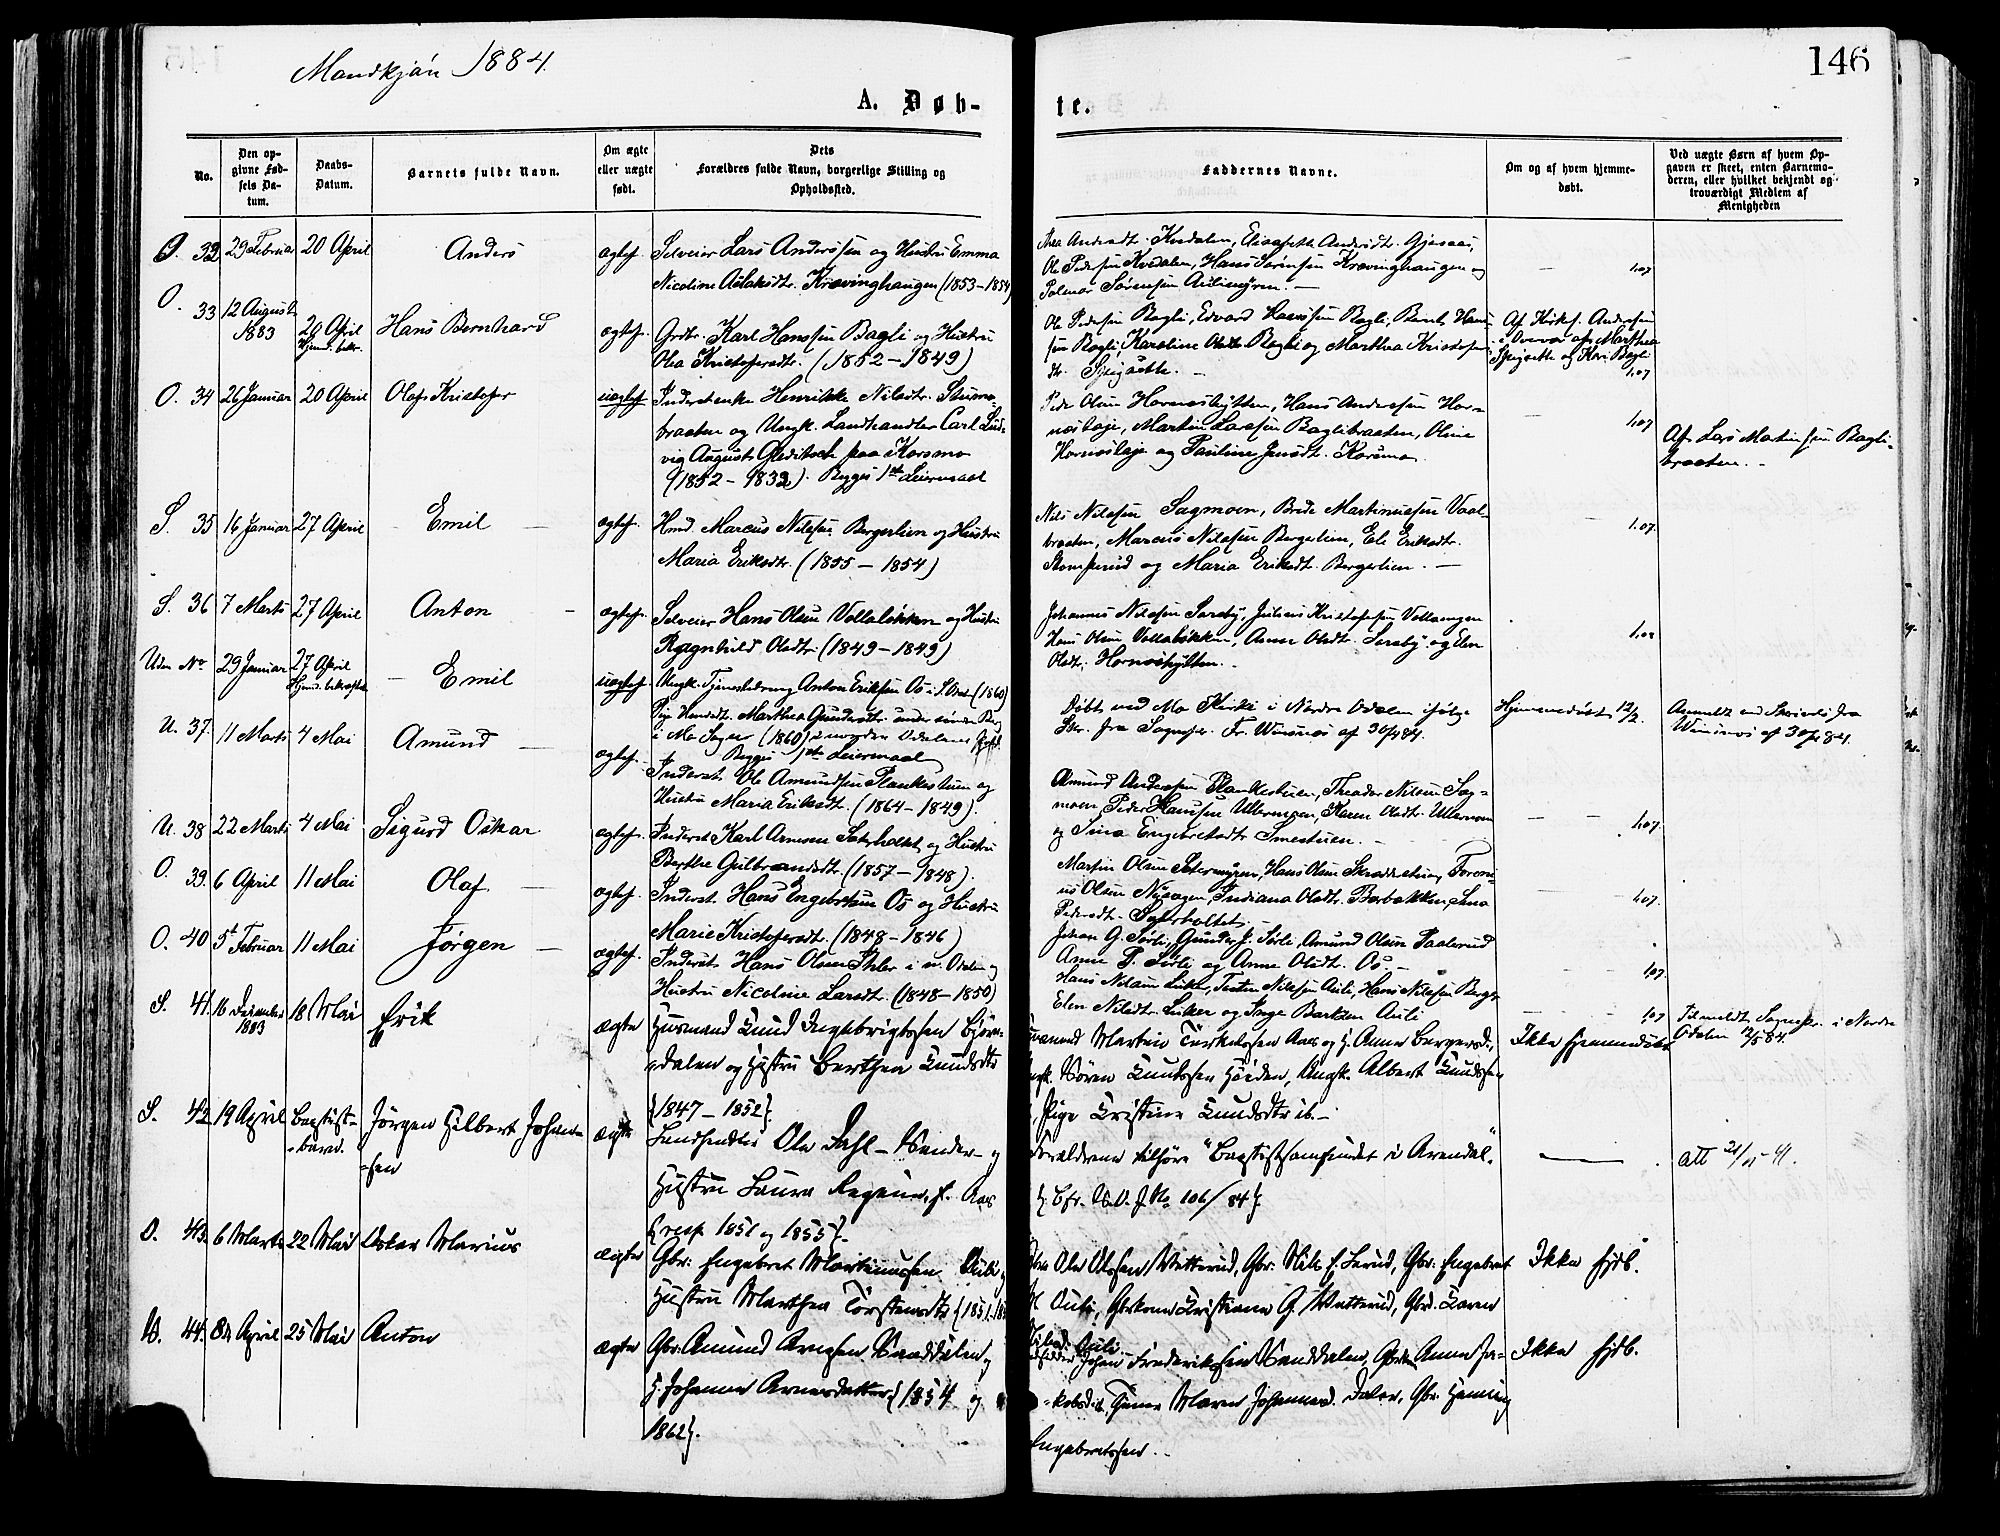 Mandkjøn 1884.
146
A. Døb-
te.
No.
Den op-
givne Fød-
sels Da-
tum.
Daabs-
Datum.
Barnets fulde Navn.
Om ægte
eller uægte
født.
Dets
Forældres fulde Navn, borgerlige Stilling og
Opholdssted.
Faddernes Navne.
Om og af hvem hjemme-
døbt.
Ved uægte Børn af hvem Op-
gaven er skeet, enten Barnemo-
deren, eller hvilket bekjendt og
troværdigt Medlem af
Menigheden
O. 32 29 Februar 20 April Anders ægtef. Selveier Lars Anderssen og Hustru Emma
Nicoline Aslaksdtr. Krævinghaugen (1853-1854)
Thea Andersdt. Kvedalen, Elisabeth Andersdt. Gjesaas,
Ole Pedersen Kvedalen, Hans Sørensen Krævinghaugen og
Palmar Sørensen Aulimyren. —
— 1.07
O. 33 12 August 1883 20 April Hjemd. bekr. Hans Bernhard ægtef. Grdbr. Karl Hanssen Bagli og Hustru
Olea Kristofersdtr. (1852-1849)
Ole Pedersen Bagli, Edvard Hanssen Bagli, Bernt Hans-
sen Bagli, Karoline Olsdtr. Bagli og Marthea Kristofers-
dtr. Spigsætte. —
Af Kirkes. Anderssen
i Overv. af Marthea
Spigsætte og Kari Bagli
1.07
O. 34 26 Januar 20 April Olaf Kristofer uægtef Inderst enke Henrikke Nilsdtr. Stumo-
braaten og Ungk. Landhandler Carl Lud-
vig August Gleditsch paa Korsmo
(1852-1832). Begges 1ste Leiermaal
Peder Olsen Hornoshytten, Hans Anderssen Hor-
noslaje, Martin Larssen Baglibraaten, Oline
Hornoslaje og Pauline Jensdt. Korsmo.
— 1.07
Af Lars Martinssen Bagli-
braaten. —
S. 35 16 Januar 27 April — Emil — ægtef. Hmd. Marcus Nilssen Bergerlien og Hustru
Maria Eriksdtr. (1855-1854)
Nils Nilssen Sagmoen, Brede Martinussen Vaal-
braaten, Marcus Nilssen Bergerlien, Eli Eriksdtr.
Stomperud og Maria Eriksdt. Bergerlien. —
— 1.07.
S. 36 7 Marts 27 April Anton — ægtef. Selveier Hans Olsen Vollaløkken og Hustru
Ragnhild Olsdtr. (1849-1849)
Johannes Nilssen Sorsby, Julius Kristofersen Vollaengen
Hans Olsen Vollaløkken, Anne Olsdt. Sorsby og Elen
Olsdt. Hornoshytten. —
1.07
Uden No 29 Januar 27 April Hjemd. bekræftet — Emil uægtef. Ungk. Tjenestedreng Anton Eriksen Os i S. Odal (1860)
Pige Marthea Gundersdtr.
i Mo Sogn (1860) i nordre Odalens
Begges 1ste Leiermaal
Døbt ved Mo Kirke i Nordre Odalen ifølge
Skr. fra Sognepr. Fr. Winsnes af 30/4 84.
Hjemmedøbt 12/2.
Anmeldt ved Skrivelse fra
Winsnes af 30/4 84.
U. 37. 11 Marts 4 Mai Amund — ægtef. Inderst. Ole Amundsen Plankestuen og
Hustru Maria Eriksdt. (1864-1849).
Amund Anderssen Plankestuen, Theodor Nilsen Sag-
moen, Peder Hanssen Ullernmoen, Karen Olsdt. Ullernmoen
og Sina Engebretsdtr. Smestuen. —
— — 1.07.
U. 38 22 Marts 4 Mai Sigurd Oskar ægtef. Inderst. Karl Arnesen Saterholtet og Hustru
Berthe Gulbrandsdtr. (1857-1848).
Martin Olsen Setermyren, Hans Olsen Skraddestuen,
Olsen Nysagen, Indiana Olsdt. Borbakken, Lena
Pedersdt. Saterholtet.
1.07.
O. 39. 6 April 11 Mai Olaf. — ægtef. Inderst. Hans Engebretsen Os og Hustru
Marie Kristofersdtr. (1848-1846)
Johan G. Sørli, Gunder J. Sørli, Amund Olsen Paalerud
Anne P. Sørli og Anne Olsdt. Os. —
— — 1.07.
O. 40 5t Februar 11 Mai Jørgen — ægtef. Inderst Hans Olsen Steler i n. Odalen og
Hustru Nicoline Larsdt. (1848-1850)
Hans Nilssen Liker, Nilssen Auli, Hans Nilssen Berg,
Elen Nilsdt. Liker og Inge Auli
— — 1.07
Tilmeldt Sognepr. i Nordre
Odalen 12/5 84.
S. 41. 16 December 1883 18 Mai Erik ægte Husmand Knud Ingebrigtssen Bjørn-
dalen og Hustru Berthea Knudsdtr
{1847-1852}.
Martin Torkelssen Aas og H. Anne
Søren Knutssen Heiden, Ungk. Albert Knudssen
, Pige Kristine Knudsdtr ib. —
Ikke hjemmedøbt
S. 42 19 April Baptist-
barn. Jørgen Hilbert Johan-
sen ægte Ole Dahl — og
Hustru Laura Regine, f. Aas
{resp 1851 og 1855}.
Forældrene tilhøre "Baptistsamfundet i Arendal".
{Cfr. J. No 106/84}.
———
att 21/11-41.
O. 43. 6 Marts 22 Mai Oskar Marius ægte Gbr. Engebret Martinussen Auli og
Hustru Marthea Torstensdtr {1851-
Ole Olssen Wetterud, Gbr. Nils E. Lerud, Gbr. Engebret
M Auli, Gbrkone Kristiane G. Wetterud, Gbrd. Karen
Auli
Ikke hjdb.
U. 44. 8de April 25 Mai Anton ægte Gbr. Amund Arnesen og
H. Johanne Arnesdatter {1854 og
1862}.
Johan Frederikssen, Anne Ja-
kobsd ib, Maren Johannesd. Dalen, Gbr. Henning
Engebretssen. —
Ikke hjdb.